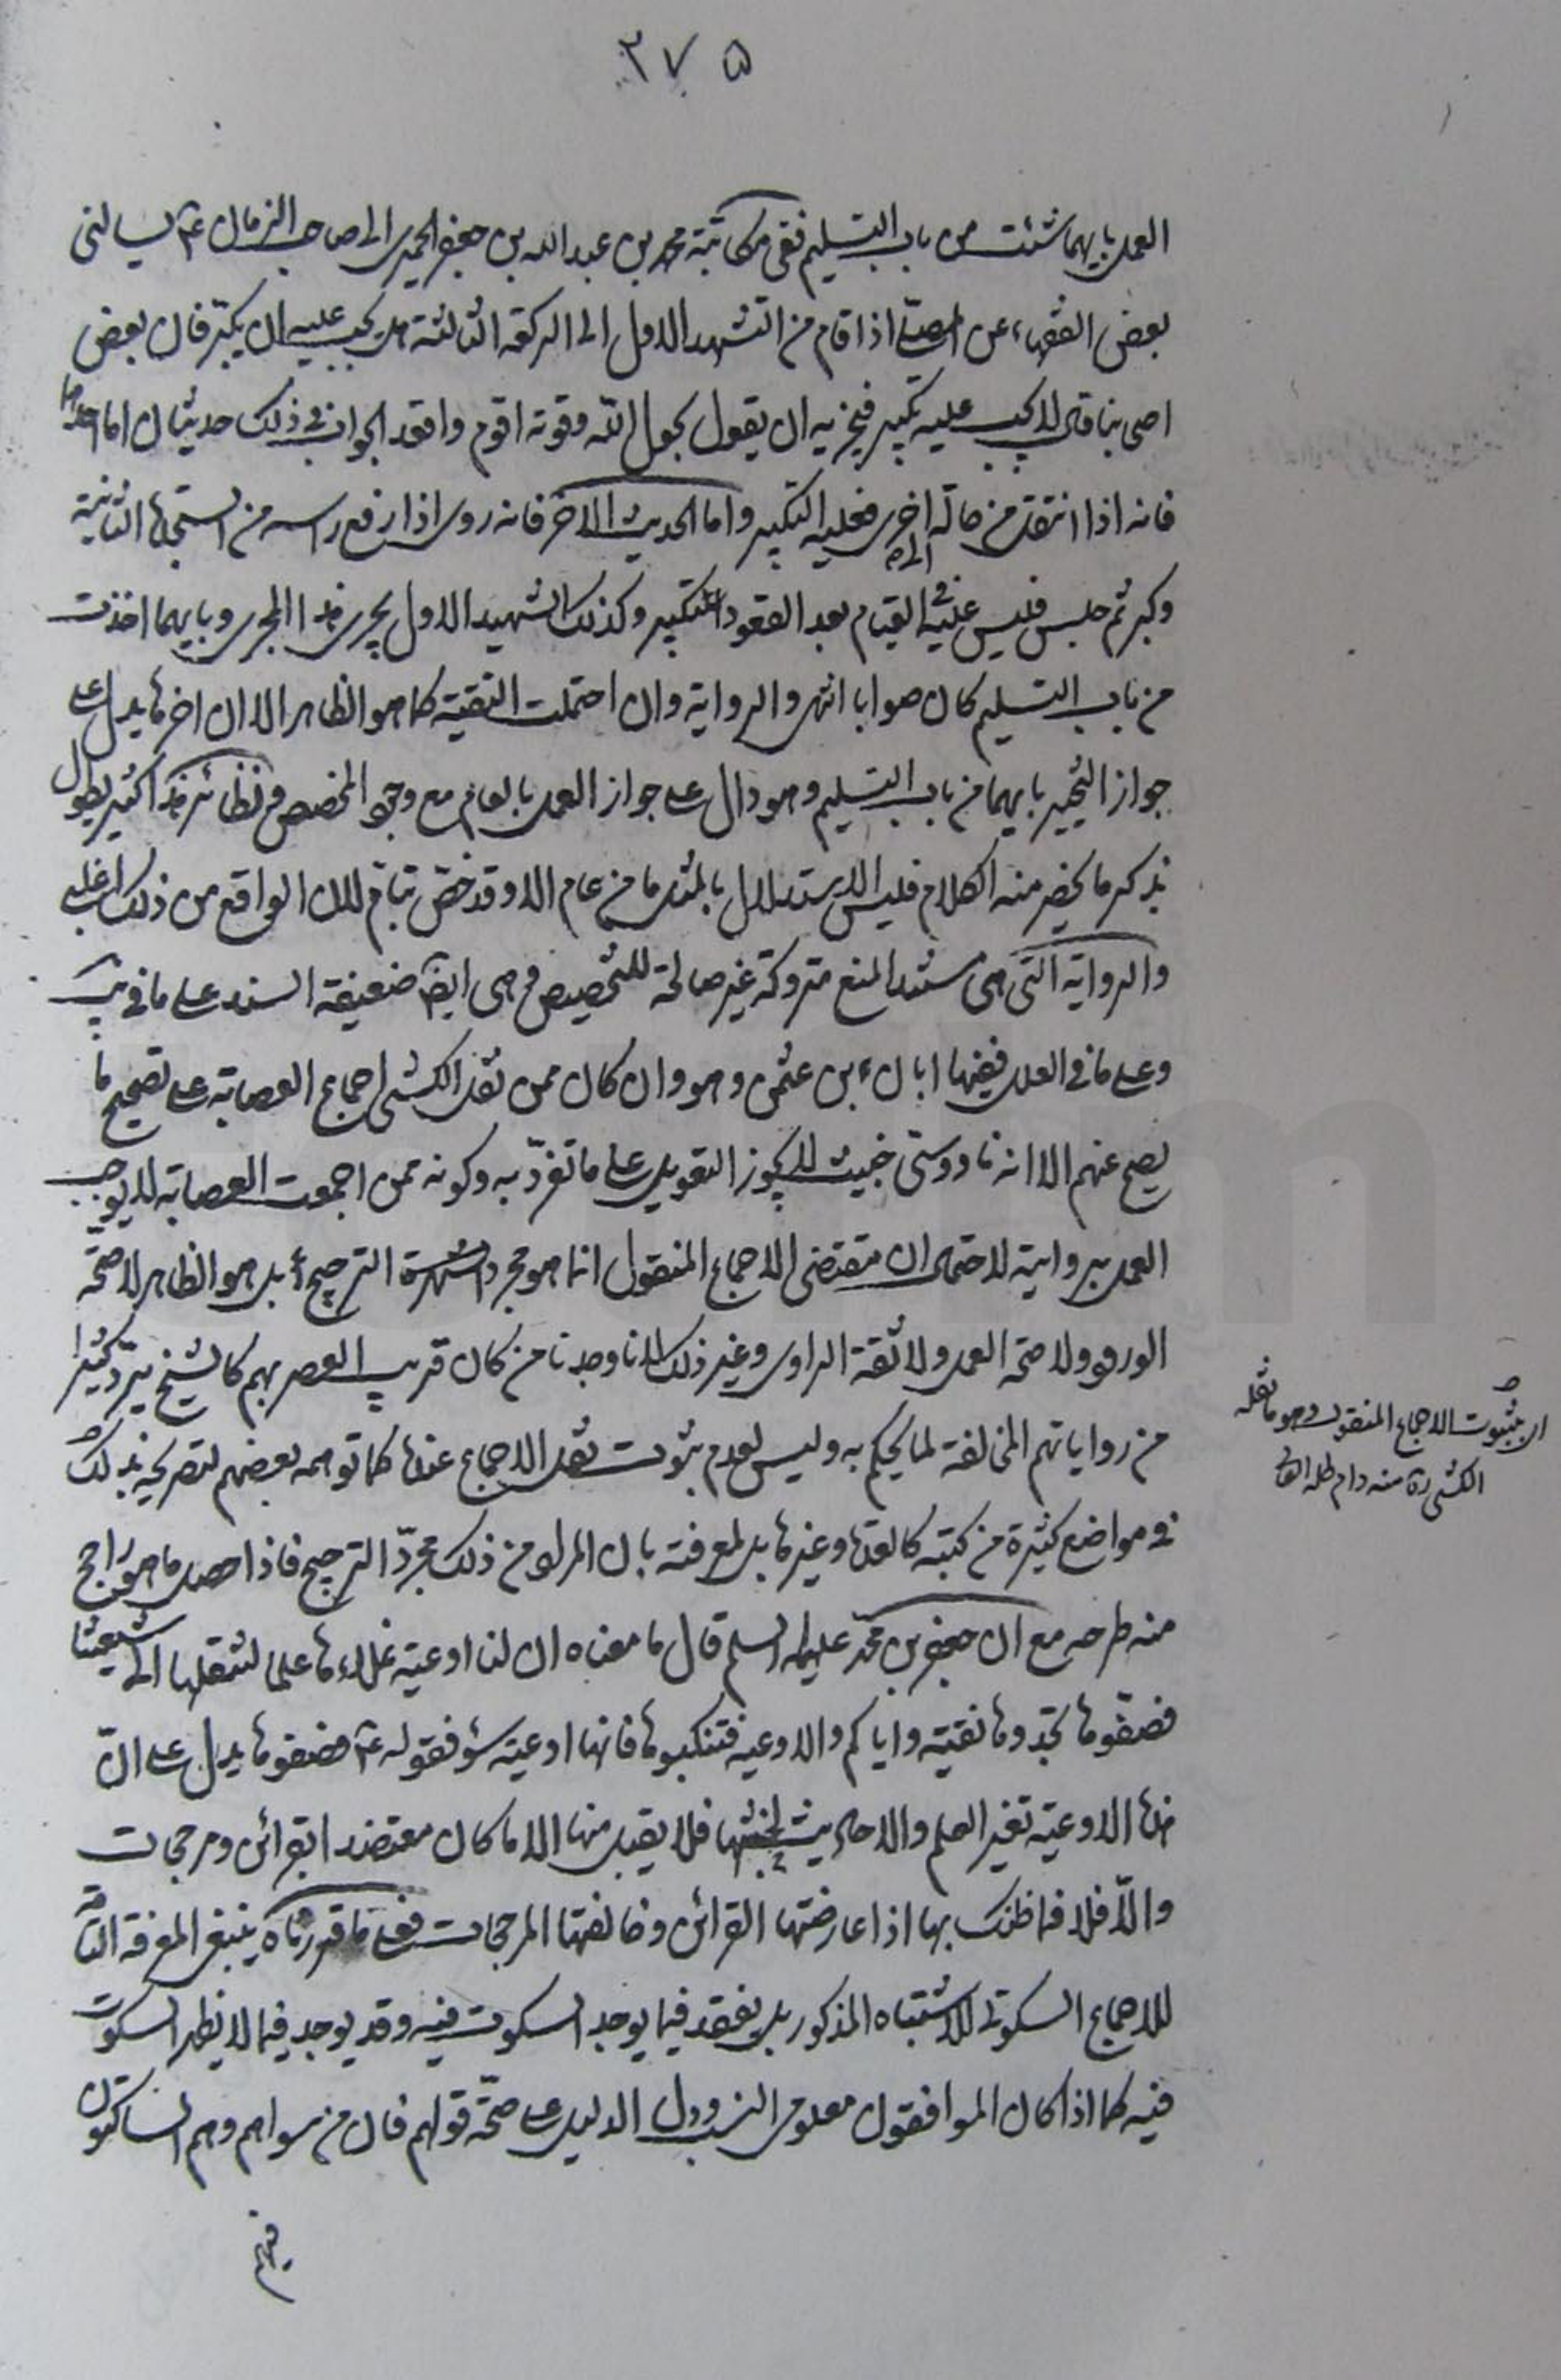 ٣٧٥
العمل بايهما شئت من باب التسليم ففى مكاتبة محمد بن عبدالله بن جعفر الحميرى الى صاحب الزمان عم يسالنى
بعض الفقهاء عن المصلى اذا قام من التشهد الاول الى الركعة الثالثة هل يجب عليه ان يكبّر فان بعض
اصحابنا قال لا يجب عليه تكبير فيجزيه ان يقول بحول الله وقوته اقوم واقعد الجواب فى ذلك حديثان اما احدهما
فانه اذا انتقل من حالة الى اخرى فعليه التكبير واما الحديث الاخر فانه روى اذا رفع راسه من السجدة الثانية
وكبر ثم جلس فليس عليه فى القيام بعد القعود تكبير وكذلك التشهد الاول يجرى هذا المجرى وبايهما اخذت
من باب التسليم كان صوابا انتهى والرواية وان احتملت التقية كما هو الظاهر الا ان اخرها يدل على
جواز التخيير بايهما من باب التسليم وهو دال على جواز العمل بالعام مع وجود المخصص ونظائر هذا كثير يطول
بذكر ما يحضر منه الكلام فليس الاستدلال بالمثل ما من عام الا وقد خصّ بتامّ لان الواقع من ذلك اغلب
والرواية التى هى مستند المنع متروكة غير صالحة للتخصيص وهى ايضا ضعيفة السند على ما فى يب
وعلى ما فى العلل ففيها ابان بن عثمن وهو وان كان ممن نقل الكشى اجماع العصابة على تصحيح ما
يصح عنهم الا انه ناووسىّ خبيث لا يجوز التعويل على ما تفرّد به وكونه ممن اجمعت العصابة لا يوجب
العمل بروايته لاحتمال ان مقتضى الاجماع المنقول انما هو مجرد الشهرة الترجيح بل هو الظاهر لا صحّة
الورود ولا صحة العمل ولا ثقة الراوى وغير ذلك لانا وجدنا من كان قريب العصر بهم كالشيخ يردّ كثيرا
من رواياتهم المخالفة لما يحكم به وليس لعدم ثبوت نقل الاجماع عنده كما توهمه بعضهم لتصريحه بذلك
فى مواضع كثيرة من كتبه كالعدة وغيرها بل لمعرفته بان المراد من ذلك مجرّد الترجيح فاذا حصل ما هو راجح
منه طرحه مع ان جعفر بن محمّد عليهما السلم قال ما معناه ان لنا اوعية نملاءها علما لتنقلها الى شيعتنا
فصفّوها تجدوها نقية واياكم والاوعية فتنكبوها فانها اوعية سوء فقوله عم فصفوها يدل على انّ
هذه الاوعية تغير العلم والاحاديث لخبثها فلا يقبل منها الا ما كان معتضدا بقرائن ومرجحات
والّا فلا فما ظنك بها اذا عارضتها القرائن وخالفتها المرجحات فعلى ما قررناه ينبغى المعرفة التامة
للاجماع السكوتى للاشتباه المذكور بل يفقد فيما يوجد السكوت فيه وقد يوجد فيما لا يظهر السكوت
فيه كما اذا كان الموافقون معلومى النسب ودل الدليل على صحّة قولهم فان من سواهم وهم الساكتون
فيهم
اى بثبوت الاجماع المنقول وهو ما نقله
الكشى ره منه دام ظله العالى